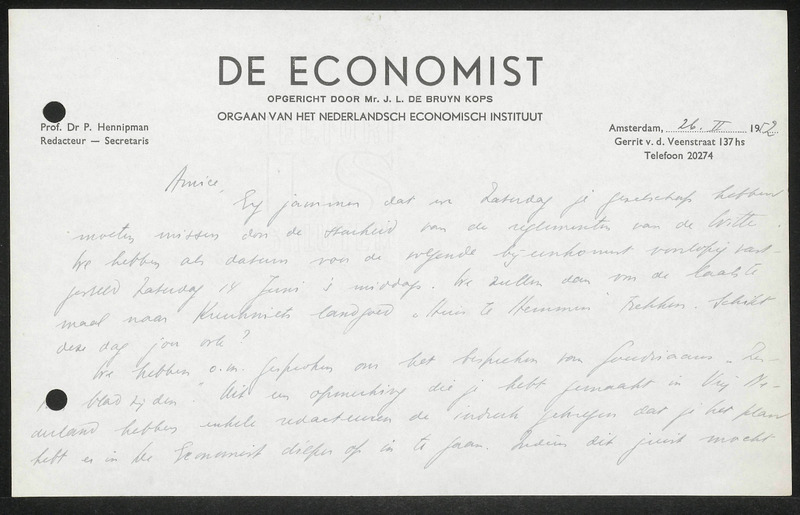 DE ECONOMIST
OPGERICHT DOOR Mr. J. L. DE BRUYN KOPS
ORGAAN VAN HET NEDERLANDSCH ECONOMISCH INSTITUUT
Prof. Dr P. Hennipman
Redacteur — Secretaris
Amsterdam, 26. II 1952
Gerrit v. d. Veenstraat 137 hs
Telefoon 20274
Amice,
Erg jammer dat we Zaterdag je gezelschap hebben
moeten missen door de starheid van de reglementen van de Witte.
We hebben als datum voor de volgende bijeenkomst voorlopig vast-
gesteld Zaterdag 14 Juni 's middags. We zullen dan om de laatste
maal naar landgoed "Huis te Hemmen" trekken. Schikt
deze dag jou ook?
We hebben o.m. gesproken om het bespreken van Goudriaans
bladzijden". Uit een opmerking die je hebt gemaakt in Vrij Ne-
derland hebben enkele redacteuren de indruk gekregen dat je het plan
hebt er in De Economist dieper op in te gaan. Indien dit juist mocht